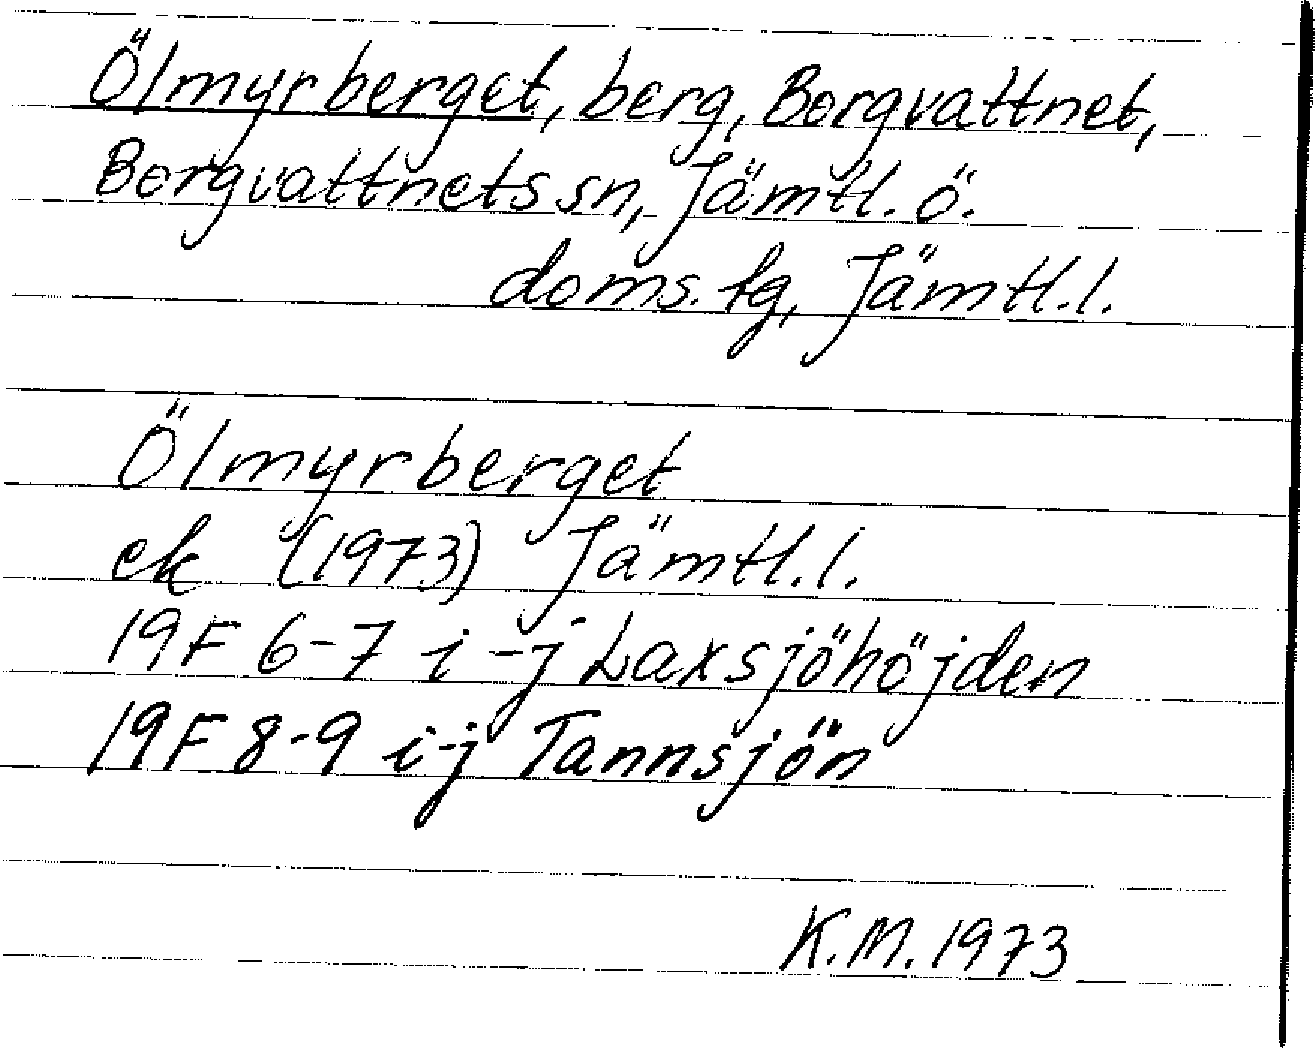 Ölmyrberget, berg, Borgvattnet,
Borgvattnets sn, Jämtl. ö.
doms. tg, Jämtl. l.
Ölmyrberget
ek (1973) Jämtl. l.
19F 6-7 i-j Laxsjöhöjden
19F 8-9 i-j Tannsjön
K.M. 1973